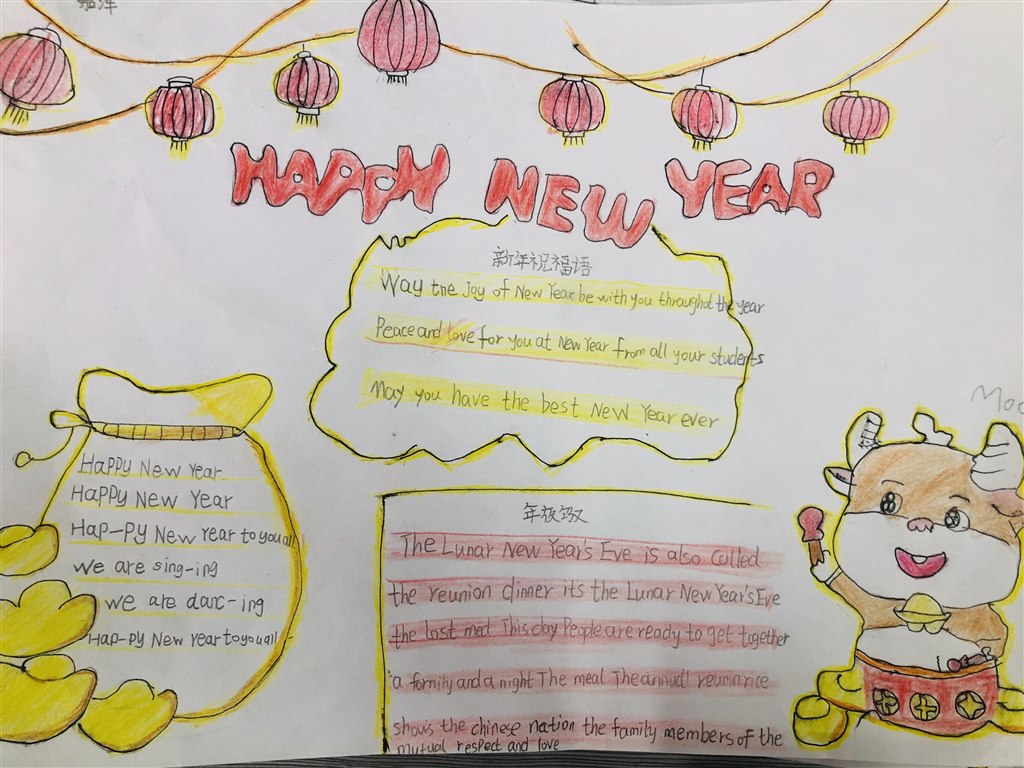 HAPPY NEW YEAR
新年祝福语
Way the joy of New Year be with you throughot the year
Peace and Love for you at New Year from all your students
May you have the best New Year ever
Happy New Year
Happy New Year
Hap-py New Year to you all
we are sing-ing
we are danc-ing
Hap-py New Year to you all
年夜饭
The Lunar New Year's Eve is also called
the reunion dinner its the Lunar New Year's Eve
the last med This day People are ready to get together
a family and a night The meal The annudl reunin rice
shows the chinese nation the family members of the
mutual respect and love
Moo